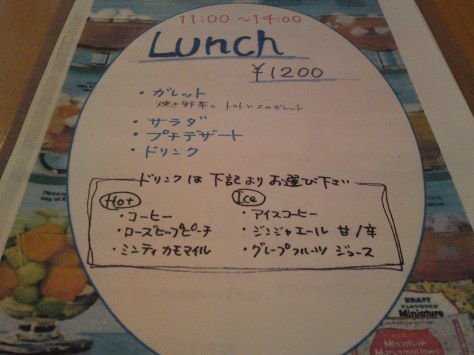 11:00~14:00
Lunch
¥1200
・ガレット
焼き野菜と トマトソースのガレット
・サラダ
・プチデザート
・ドリンク
ドリンクは 下記より お選び下さい
Hot
Ice
・コーヒー
・アイスコーヒー
・ローズヒップピーチ
・ジンジャエール 甘/辛
・ミンティカモマイル
・グレープフルーツ ジュース
KRAFT
FLAVORED
Miniature